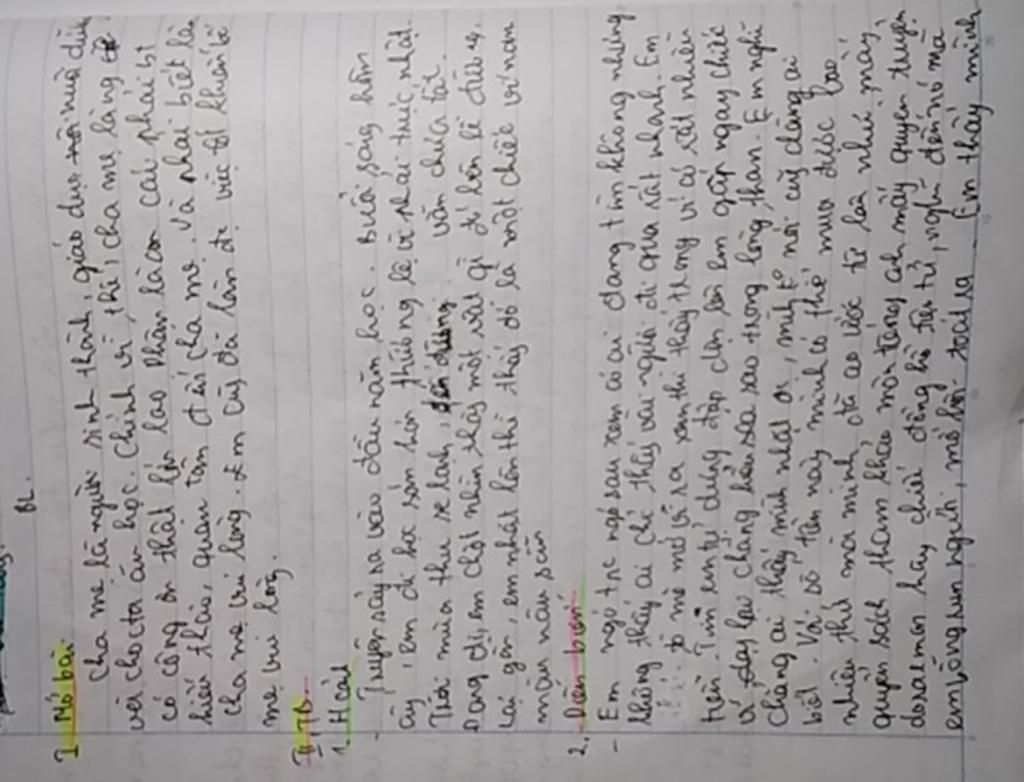 BL.
I Mở bài.
Cha mẹ là người sinh thành, giáo dục nuôi dưỡng
và cho cta ăn học. Chính vì thế, cha mẹ là ng
có công ơn thật lớn lao. Phận là con cái phải bt
hiếu thảo, quan tâm đến cha mẹ. Và phải biết làm
cha mẹ vui lòng. Em cũng đã làm đc việc tốt khiến bố
mẹ vui lòng.
II, TB
1. Hcảnh
- Truyện xảy ra vào đầu năm học. Buổi sáng hôm
ấy, em đi học sớm hơn thường lệ vì phải trực nhật.
Trời mùa thu se lạnh, đèn đường vẫn chưa tắt.
Đang đi, em chợt nhìn thấy một vật gì đó bên lề đường.
Lại gần, em nhặt lên thì thấy đó là một chiếc ví nam
màu nâu sẫm
2, Diễn biến
- Em ngó trc ngó sau xem có ai đang tìm không nhưng
không thấy ai chỉ thấy vài người đi qua rất nhanh. Em
tò mò mở ví ra xem thì thấy trong ví có rất nhiều
tiền. Tim em tự dưng đập dồn lên em gấp ngay chiếc
ví lại chẳng hiểu sao trong lòng tham. Em nghĩ
chẳng ai thấy mình nhặt đc, mình k nói cũng chẳng ai
biết. Với số tiền này mình có thể mua được bao
nhiêu thứ mà mình đã ao ước từ lâu như mấy
quyển sách tham khảo môn tiếng anh mấy quyển truyện
doraemon hay chiếc đồng hồ điện tử, nghĩ đến nó mà
em bỗng run người, mồ hôi toát ra. Em thấy mình